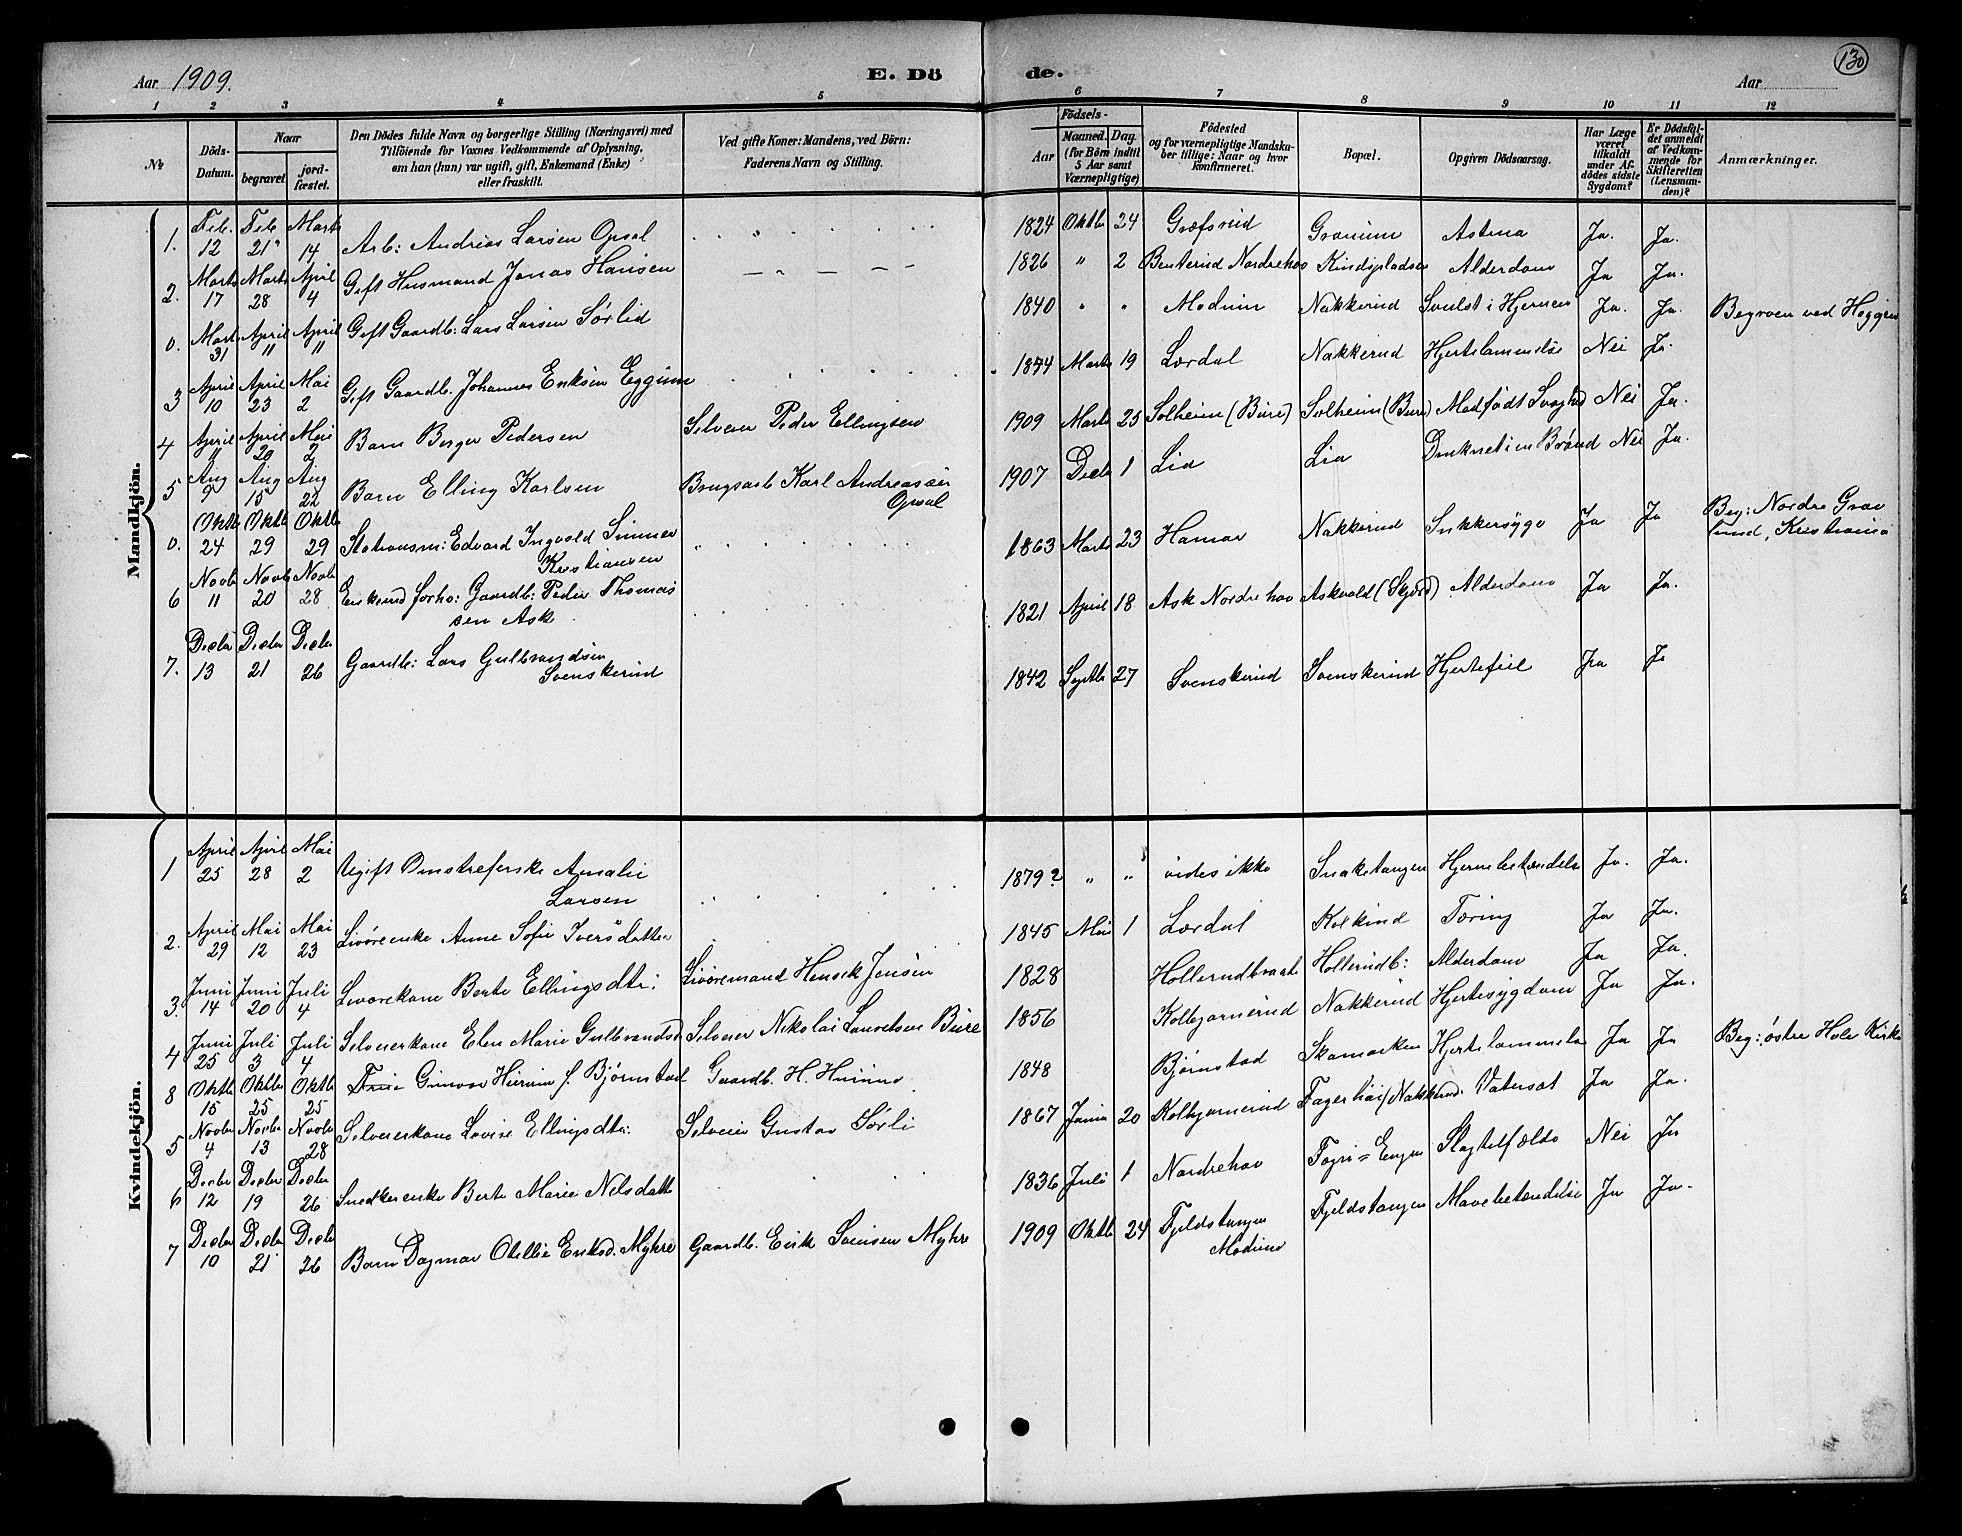 Aar 1909. E. Dö de. Aar 130
1 2 3 4 5 6 7 8 9 10 11 12
№
Döds-Datum.
Naar
begravet.
jord-fæstet.
Den Dödes fulde Navn og borgerlige Stilling (Næringsvei) med
Tilföiende for Voxnes Vedkommende af Oplysning,
om han (hun) var ugift, gift, Enkemand (Enke)
eller fraskilt.
Ved gifte Koner: Mandens, ved Börn:
Faderens Navn og Stilling.
Födsels-
Aar
Maaned. Dag.
(for Börn indtil
5 Aar samt
Værnepligtige)
Födested
og for værnepligtige Mandska-
ber tillige: Naar og hvor
konfirmeret.
Bopæl.
Opgiven Dödsaarsag.
Har Læge
været
tilkaldt
under Af-
dödes sidste
Sygdom?
Er Dödsfal-
det anmeldt
af Vedkom-
mende for
Skifteretten
(Lensman-
den)?
Anmærkninger.
Mandkjön.
1. Feb. 12 Feb 21 Marts 14 Arb: Andreas Larsen Opsal 1824 Oktb 24 Græfsrud Granum Astma Ja. Ja.
2. Marts 17 Marts 28 April 4 Gift Husmand Jonas Hansen 1826 " 2 Benterud Nordrehov Kindspladsen Alderdom Ja Ja.
0. Mart 31 April 11 April 11 Gift Gaardb: Lars Larsen Sørlid 1840 " " Modum Nakkerud Svulst i Hjernen Ja. Ja. Begraven ved Heggen
3 April 10 April 23 Mai 2 Gift Gaardb. Johannes Eriksen Eggum 1844 Marts 19 Lærdal Nakkerud Hjertelammelse Nei Ja.
4 April 11 April 20 Mai 2 Barn Birger Pedersen Selveier Peder Ellingsen 1909 Marts 25 Solheim (Bure) Solheim (Bure) Medfødt Svaghed Nei Ja.
5 Aug 9 Aug 15 Aug 22 Barn Elling Karlsen Brugsarb Karl Andreassen Opsal 1907 Decbr 1 Lia Lia Druknet i en Brønd Nei Ja.
0. Oktb 24 Oktb 29 Oktb 29 Stationsm: Edvard Ingvald Simmer Kristiansen 1863 Marts 23 Hamar Nakkerud Sukkersyge Ja Ja Beg: Nordre Grav lund, Kristiania
6 Novb 11 Novb 20 Novb 28 Enkemd forho: Gaardb: Peder Thomas sen Ask 1821 April 18 Ask Nordrehov Askvold Alderdom Ja Ja.
7. Decbr 13 Decbr 21 Decbr 26 Gaardb: Lars Gulbrandsen Svenskerud 1842 Septb 27 Svenskerud Svenskerud Hjertefeil Ja Ja
Kvindekjön.
1 April 25 April 28 Mai 2 Ugift Omstreferske Amalie Larsen 1879? " " vides ikke Snaketangen Hjernebetændelse Ja. Ja.
2. April 29 Mai 12 Mai 23 Livøreenke Anne Sofie Iversdatter 1845 Mai 1 Lærdal Tæring Ja Ja.
3. Juni 14 Juni 20 Juli 4 Livørekone Berte Ellingsdtr: Livøremand Henrik Jensen 1828 Hollerudbraat Hollerudb: Alderdom Ja Ja.
4 Juni 25 Juli 3 Juli 4 Selveierkone Elen Marie Gulbrandsd Selveier Nikolai Lauretsen Bure 1856 Kolbjørnerud Nakkerud Hjertesygdom Ja Ja.
8 Oktb 15 Oktb 25 Oktb 25 Frue f. Bjørnstad Gaardb. H. 1848 Bjørnstad Skamarken Hjertelammelse Ja Ja Beg: østre Hole Kirke
5 Novbr 4 Novbr 13 Novbr 28 Selveierkone Lovise Ellingsdtr: Selveier Gustav Sørli 1867 Juni 20 Kolbjørnerud Fagerhøi (Nakkerud. Vatersot Ja Ja.
6 Decbr 12 Decbr 19 Decbr 26 Snedkerenke Berte Marie Nilsdatter 1836 Juli 1 Nordrehov Fagri=Engen Slagtilfælde Nei Ja
7 Decbr 10 Decbr 21 Decbr 26 Barn Dagmar Otellie Eriksd. Myhre Gaardb. Erik Svensen Myhre 1909 Oktb 24 Fjeldstangen Modum Fjeldstangen Mavebetændelse Ja Ja.